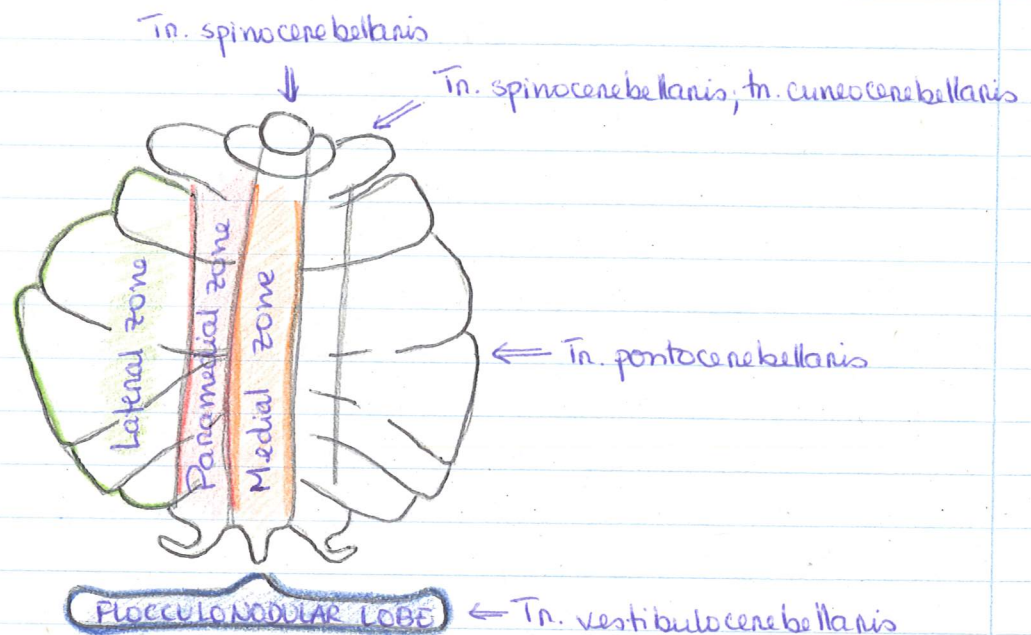 Tr. spinocerebellaris
Tr. spinocerebellaris, tr. cuneocerebellaris
Lateral zone
Paramedial zone
Medial zone
Tr. pontocerebellaris
FLOCCULONODULAR LOBE
Tr. vestibulocerebellaris